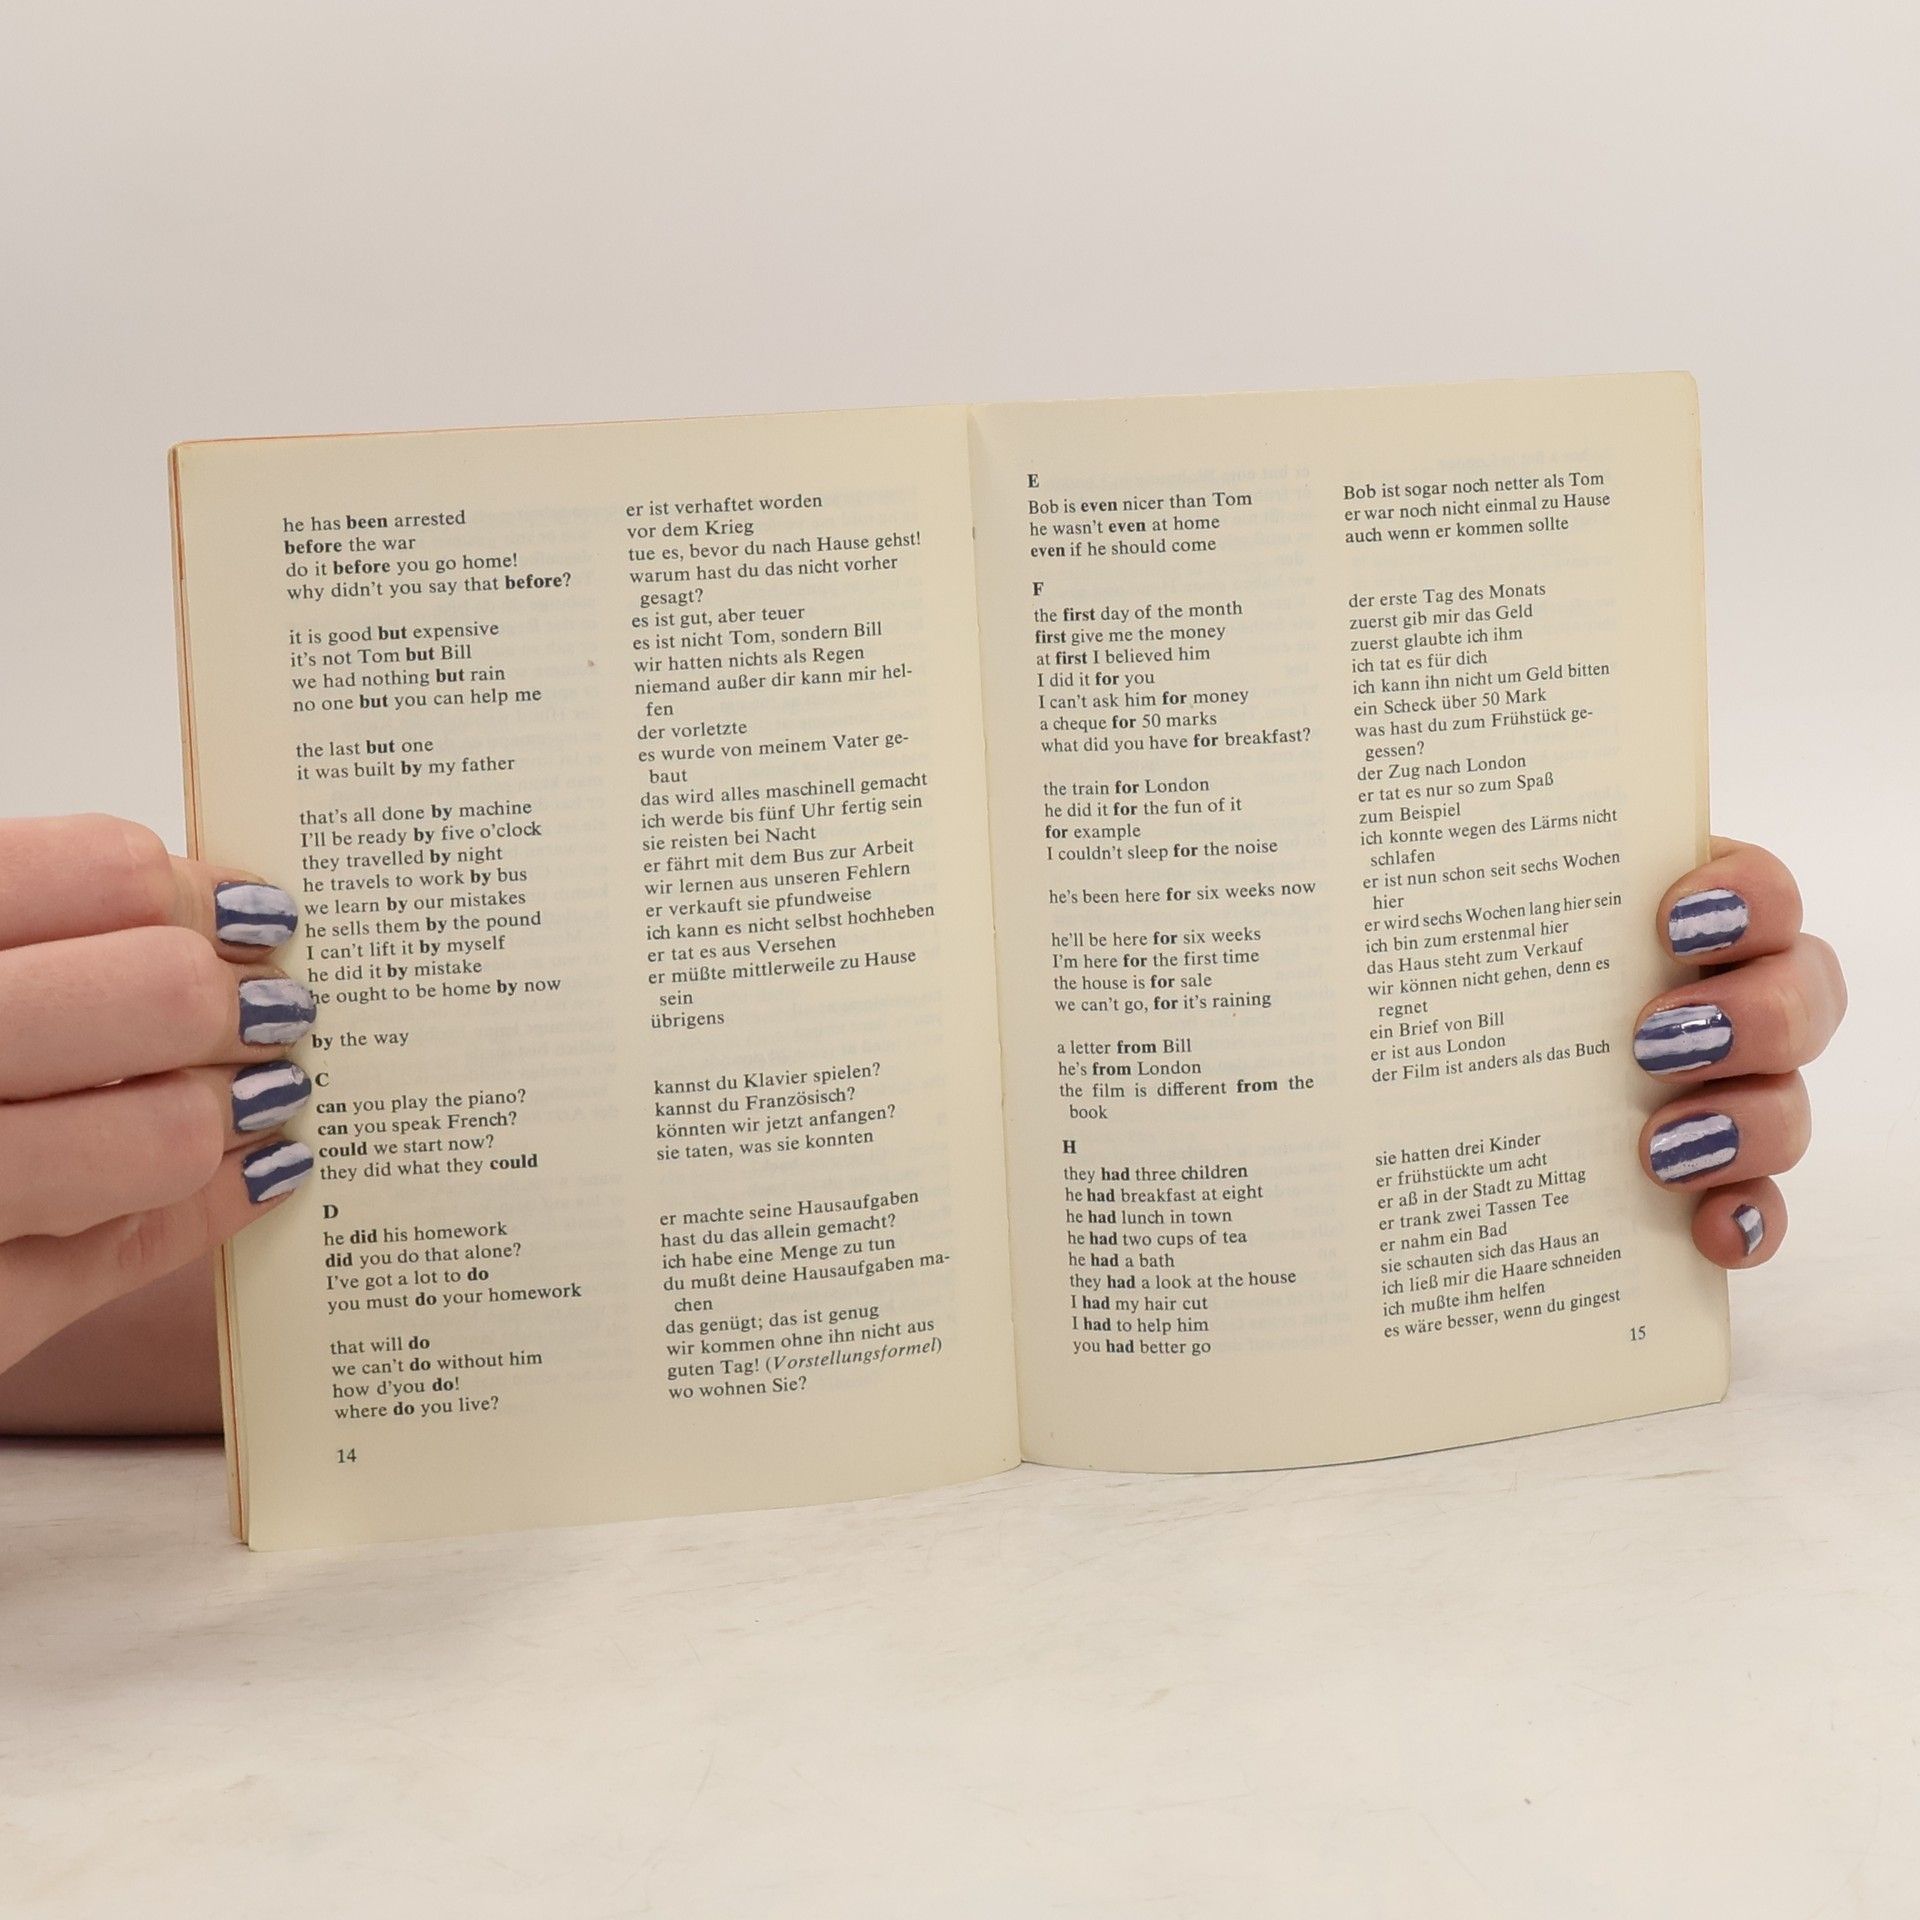 he has been arrested
before the war
do it before you go home!
why didn't you say that before?
it is good but expensive
it's not Tom but Bill
we had nothing but rain
no one but you can help me
the last but one
it was built by my father
that's all done by machine
I'll be ready by five o'clock
they travelled by night
he travels to work by bus
we learn by our mistakes
he sells them by the pound
I can't lift it by myself
he did it by mistake
he ought to be home by now
by the way
C
can you play the piano?
can you speak French?
could we start now?
they did what they could
D
he did his homework
did you do that alone?
I've got a lot to do
you must do your homework
that will do
we can't do without him
how d'you do!
where do you live?
14
er ist verhaftet worden
vor dem Krieg
tue es, bevor du nach Hause gehst!
warum hast du das nicht vorher
gesagt?
es ist gut, aber teuer
es ist nicht Tom, sondern Bill
wir hatten nichts als Regen
niemand außer dir kann mir hel-
fen
der vorletzte
es wurde von meinem Vater ge-
baut
das wird alles maschinell gemacht
ich werde bis fünf Uhr fertig sein
sie reisten bei Nacht
er fährt mit dem Bus zur Arbeit
wir lernen aus unseren Fehlern
er verkauft sie pfundweise
ich kann es nicht selbst hochheben
er tat es aus Versehen
er müßte mittlerweile zu Hause
sein
übrigens
kannst du Klavier spielen?
kannst du Französisch?
könnten wir jetzt anfangen?
sie taten, was sie konnten
er machte seine Hausaufgaben
hast du das allein gemacht?
ich habe eine Menge zu tun
du mußt deine Hausaufgaben ma-
chen
das genügt; das ist genug
wir kommen ohne ihn nicht aus
guten Tag! (Vorstellungsformel)
wo wohnen Sie?
E
Bob is even nicer than Tom
he wasn't even at home
even if he should come
F
the first day of the month
first give me the money
at first I believed him
I did it for you
I can't ask him for money
a cheque for 50 marks
what did you have for breakfast?
the train for London
he did it for the fun of it
for example
I couldn't sleep for the noise
he's been here for six weeks now
he'll be here for six weeks
I'm here for the first time
the house is for sale
we can't go, for it's raining
a letter from Bill
he's from London
the film is different from the
book
H
they had three children
he had breakfast at eight
he had lunch in town
he had two cups of tea
he had a bath
they had a look at the house
I had my hair cut
I had to help him
you had better go
Bob ist sogar noch netter als Tom
er war noch nicht einmal zu Hause
auch wenn er kommen sollte
der erste Tag des Monats
zuerst gib mir das Geld
zuerst glaubte ich ihm
ich tat es für dich
ich kann ihn nicht um Geld bitten
ein Scheck über 50 Mark
was hast du zum Frühstück ge-
gessen?
der Zug nach London
er tat es nur so zum Spaß
zum Beispiel
ich konnte wegen des Lärms nicht
schlafen
er ist nun schon seit sechs Wochen
hier
er wird sechs Wochen lang hier sein
ich bin zum erstenmal hier
das Haus steht zum Verkauf
wir können nicht gehen, denn es
regnet
ein Brief von Bill
er ist aus London
der Film ist anders als das Buch
sie hatten drei Kinder
er frühstückte um acht
er aß in der Stadt zu Mittag
er trank zwei Tassen Tee
er nahm ein Bad
sie schauten sich das Haus an
ich ließ mir die Haare schneiden
ich mußte ihm helfen
es wäre besser, wenn du gingest
15